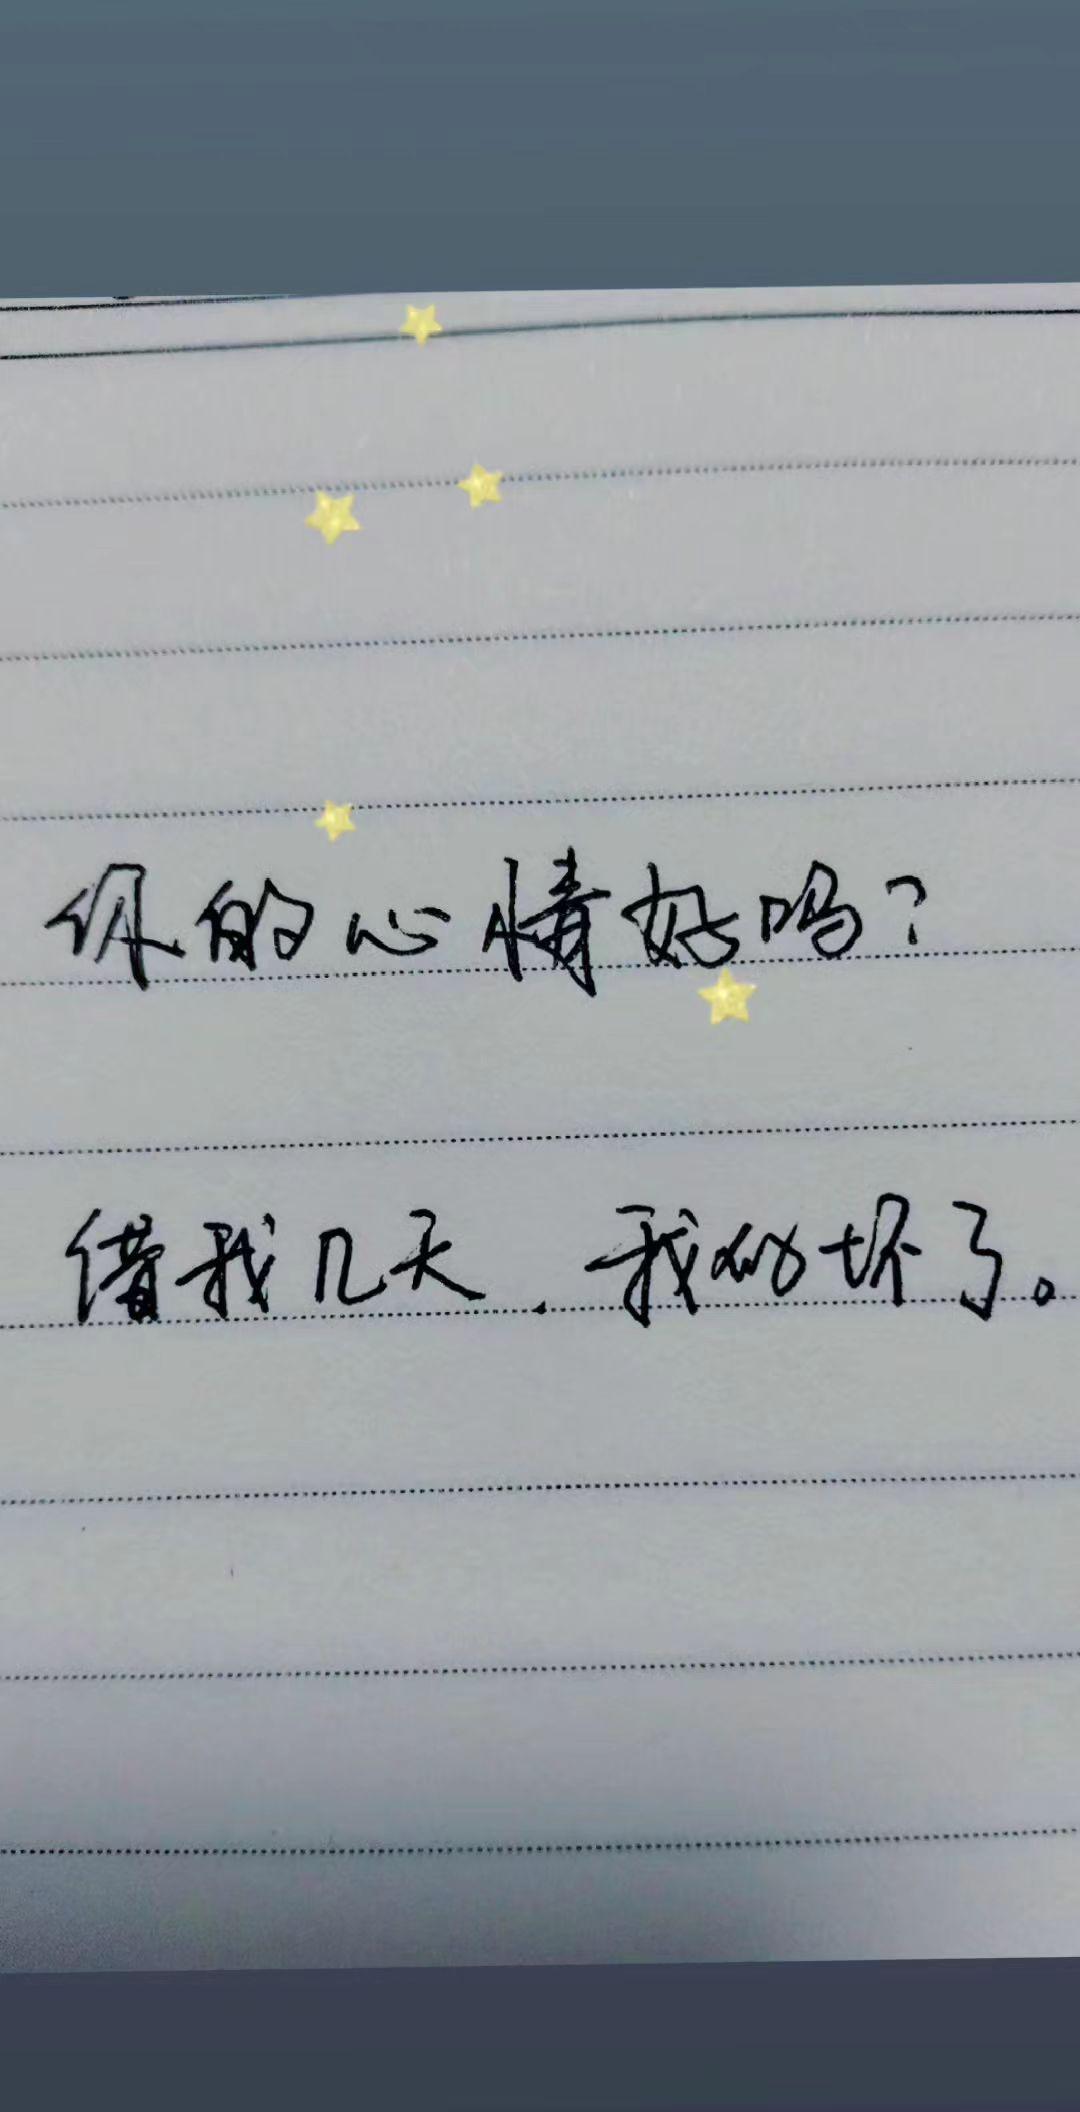 你的心情好吗?
借我几天,我的坏了。